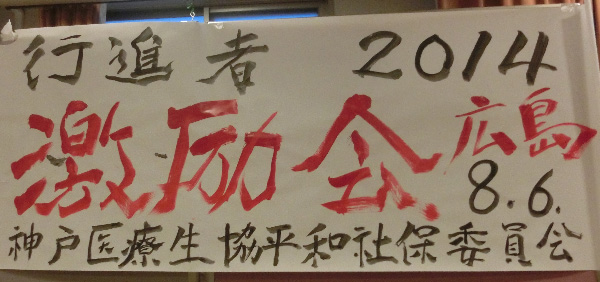 行進者 2014
激励会 広島
8.6.
神戸医療生協平和社保委員会